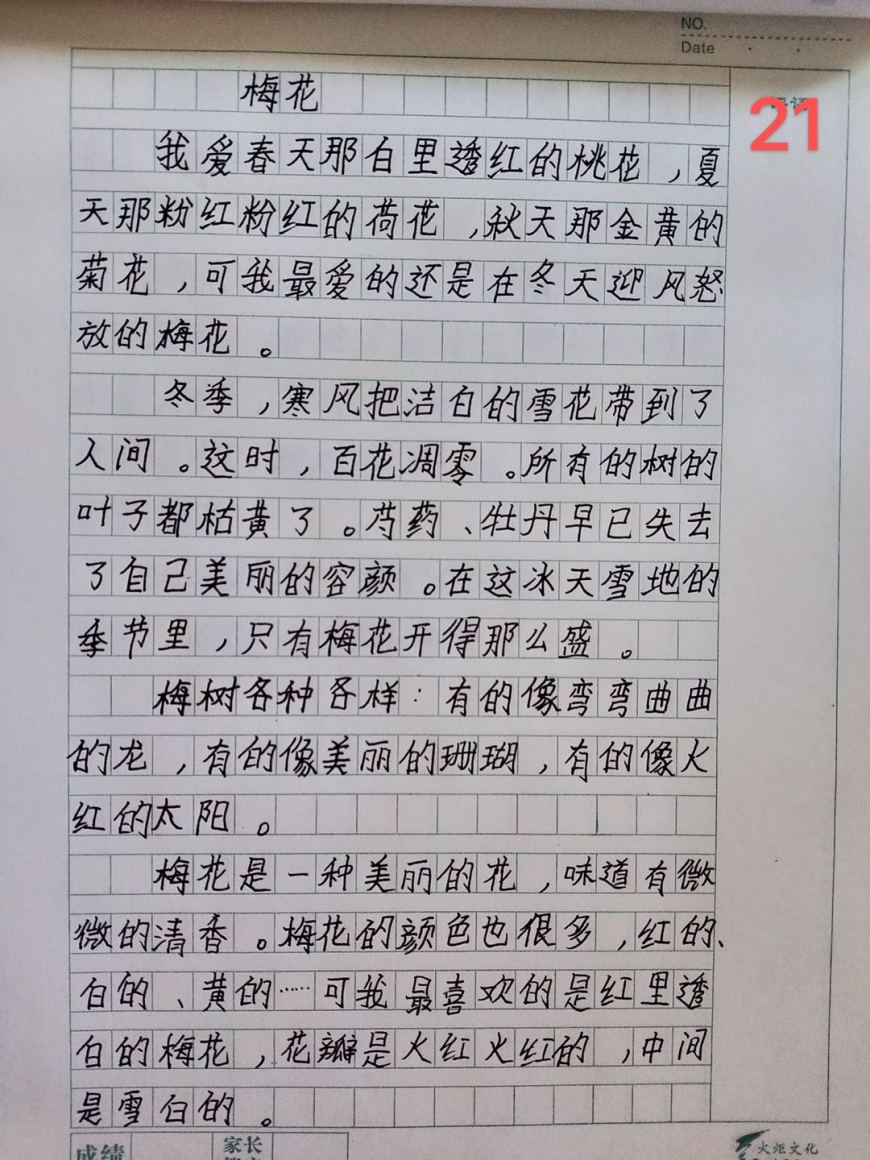 NO.
Date
21
梅花
我爱春天那白里透红的桃花，夏
天那粉红粉红的荷花，秋天那金黄的
菊花，可我最爱的还是在冬天迎风怒
放的梅花。
冬季，寒风把洁白的雪花带到了
人间。这时，百花凋零。所有的树的
叶子都枯黄了。芍药、牡丹早已失去
了自己美丽的容颜。在这冰天雪地的
季节里，只有梅花开得那么盛。
梅树各种各样：有的像弯弯曲曲
的龙，有的像美丽的珊瑚，有的像火
红的太阳。
梅花是一种美丽的花，味道有微
微的清香。梅花的颜色也很多，红的、
白的、黄的……可我最喜欢的是红里透
白的梅花，花瓣是火红火红的，中间
是雪白的。
成绩
家长
火炬文化